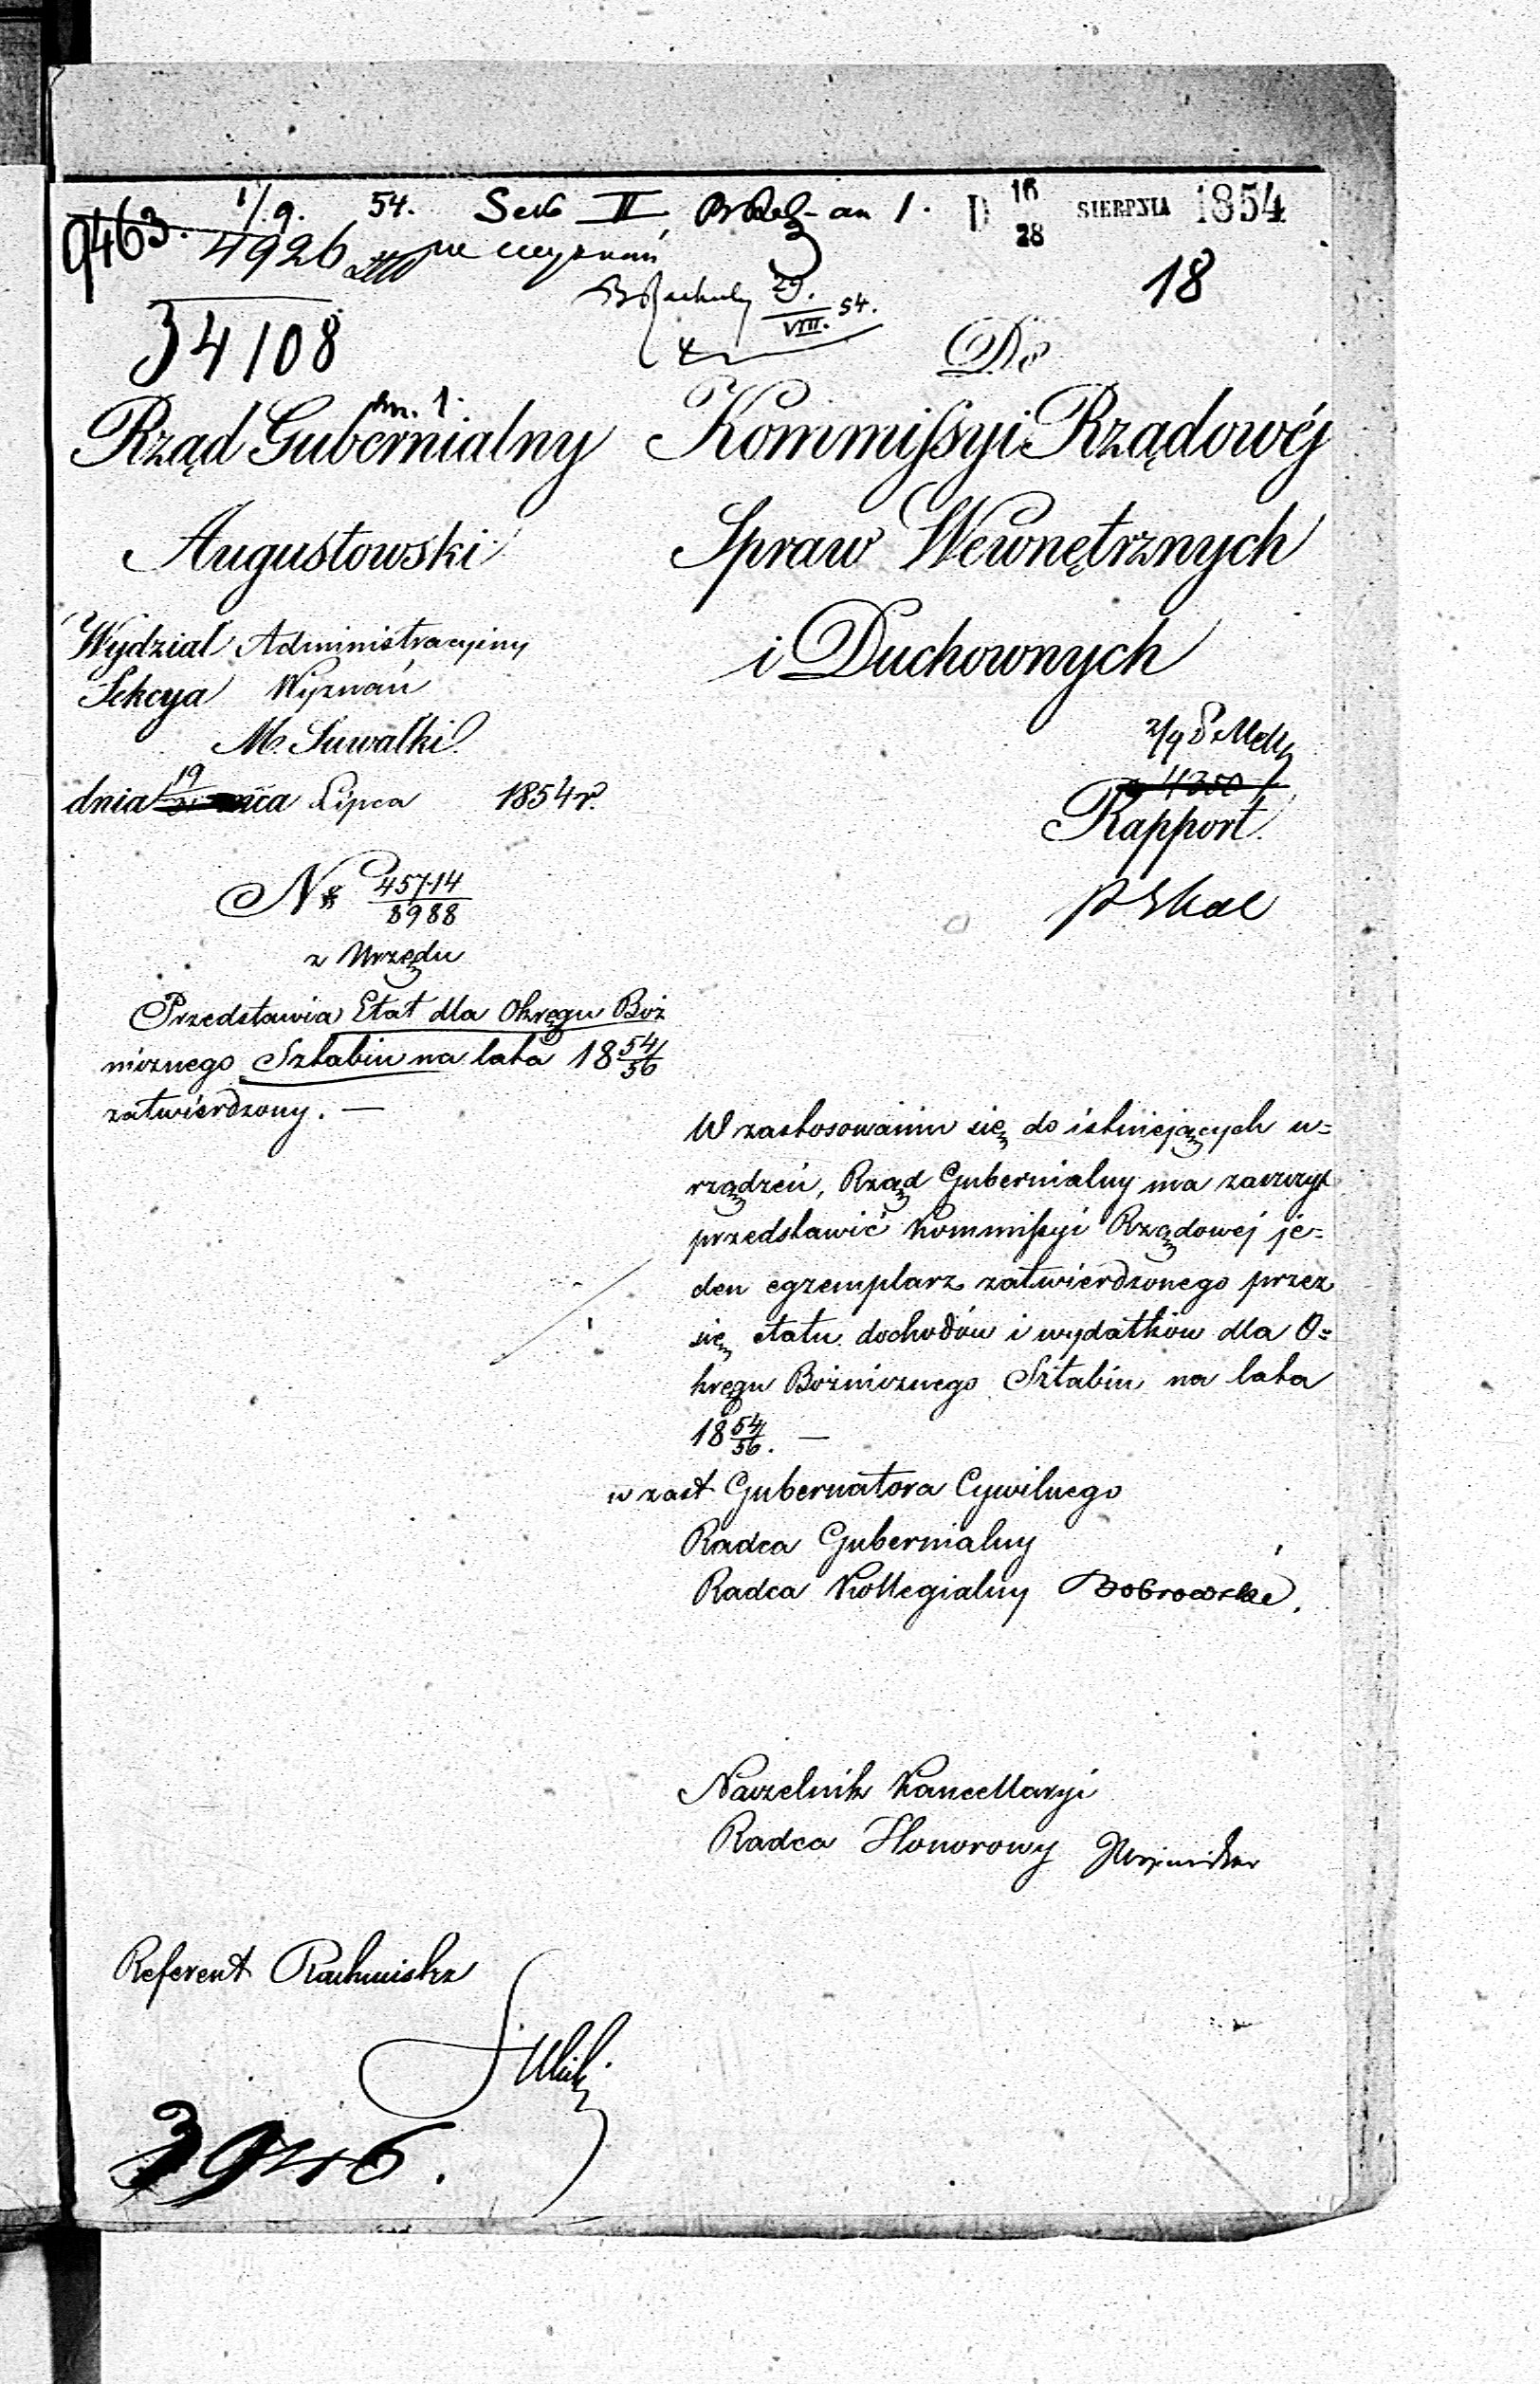 1/9. 54. Sek II an 1. D 16/28 SIERPNIA 1854
9463. 4926
29./VIII. 54.
18
34108
an. 1.
Do
Rząd Gubernialny
Augustowski
Kommissyi Rządowéj
Spraw Wewnętrznych
i Duchownych
Wydział Administracyiny
Sekcya Wyznań
M. Suwałki
dnia 19/31 Lipca 1854 r.
2/9
4300
Rapport.
№ 45714/8988
z Urzędu
Przedstawia Etat dla Okręgu Boż
nicznego Sztabin na lata 18 54/56
zatwierdzony. —
W zastosowaniu się do istniejących u=
rządzeń, Rząd Gubernialny ma zaszczyt
przedstawić Kommissyi Rządowej je=
den egzemplarz zatwierdzonego przez
się etatu dochodów i wydatków dla O=
kręgu Bożnicznego Sztabin na lata
18 54/56. —
w zast Gubernatora Cywilnego
Radca Gubernialny
Radca Kollegialny Dobrowolski.
Naczelnik Kancellaryi
Radca Honorowy
Referent Rachmistrz
3946.